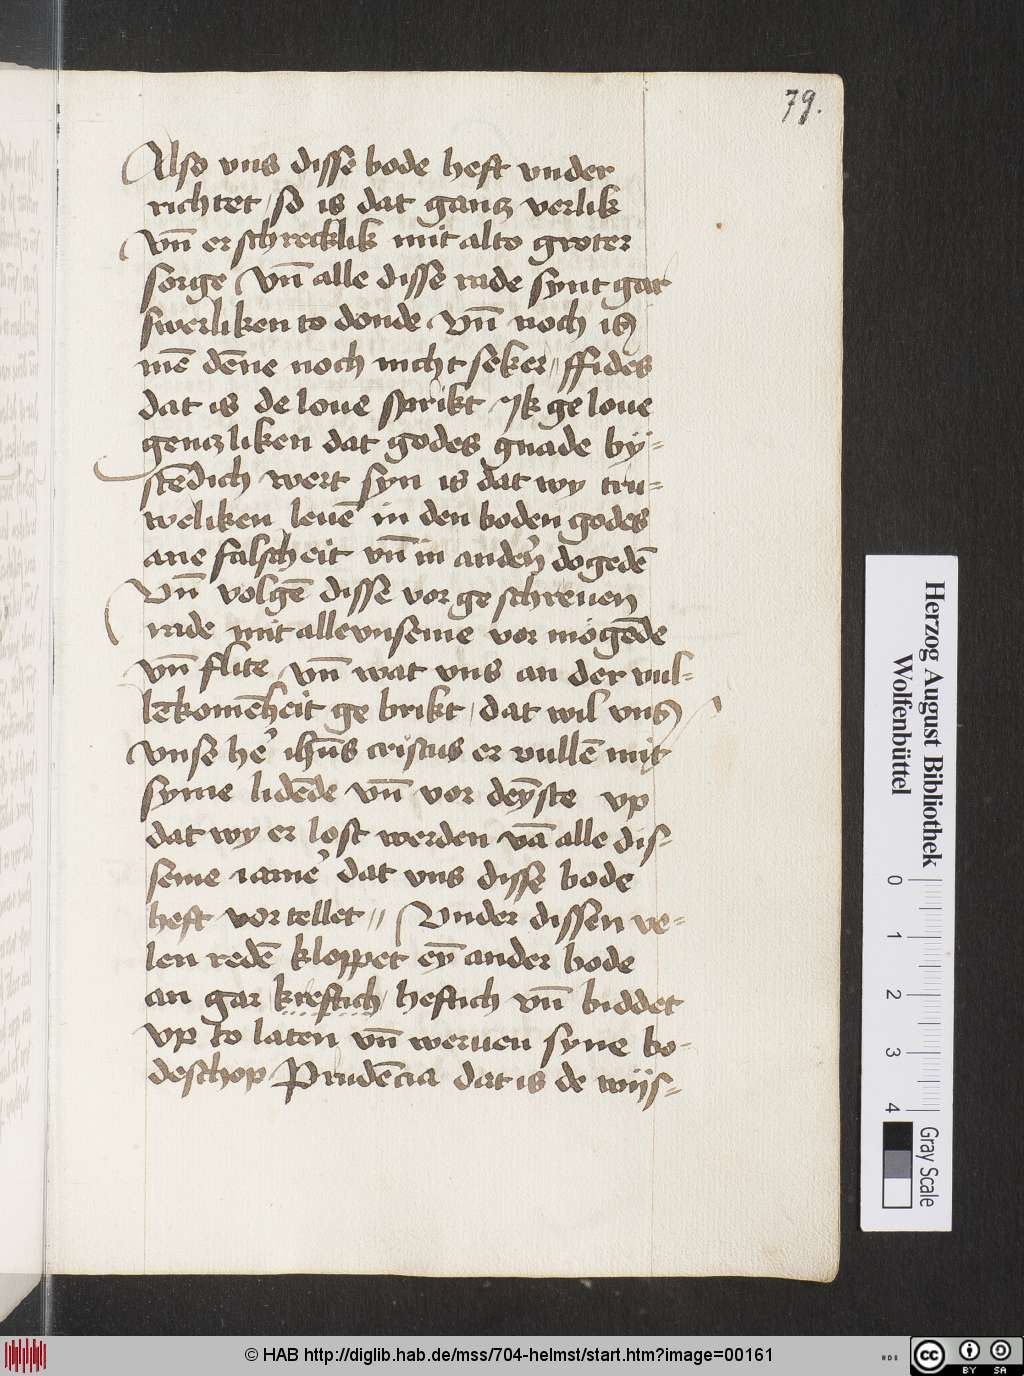 79.
Also vns disse bode heft vnder
richtet / so is dat gancz verlik
vn̄ erschrecklik mit alto groter
sorge / vn̄ alle disse rade synt gar
swerliken to donde / vn̄ noch is
mē dēne noch nicht seker // ffides
dat is de loue sprikt / yk geloue
genczliken dat godes gnade bÿ=
stēdich wert syn is dat wy tru=
weliken leuē in den boden godes
ane falscheit vn̄ in andeꝛn̄ dogedē
vn̄ volgē disse vorgeschreuen
rade mit alle vnseme vormogēde
vn̄ flite / vn̄ wat vns an der vul=
lēkomēheit gebrikt / dat wil vns
vnse he᷎ ih̄us cristus ervullē mit
syme lidēde vn̄ vordeȳste vp
dat wy erlost werden vā alle dis=
seme iame᷎ dat vns disse bode
heft vortellet // Vnder dissen re=
len redē kloppet eȳ ander bode
an gar kreftich / heftich vn̄ biddet
vp to laten vn̄ weruen syne bo=
deschop Prudēcia dat is de wijs=
Herzog August Bibliothek
Wolfenbüttel
0 1 2 3 4
Gray Scale
© HAB http://diglib.hab.de/mss/704-helmst/start.htm?image=00161
cc BY SA